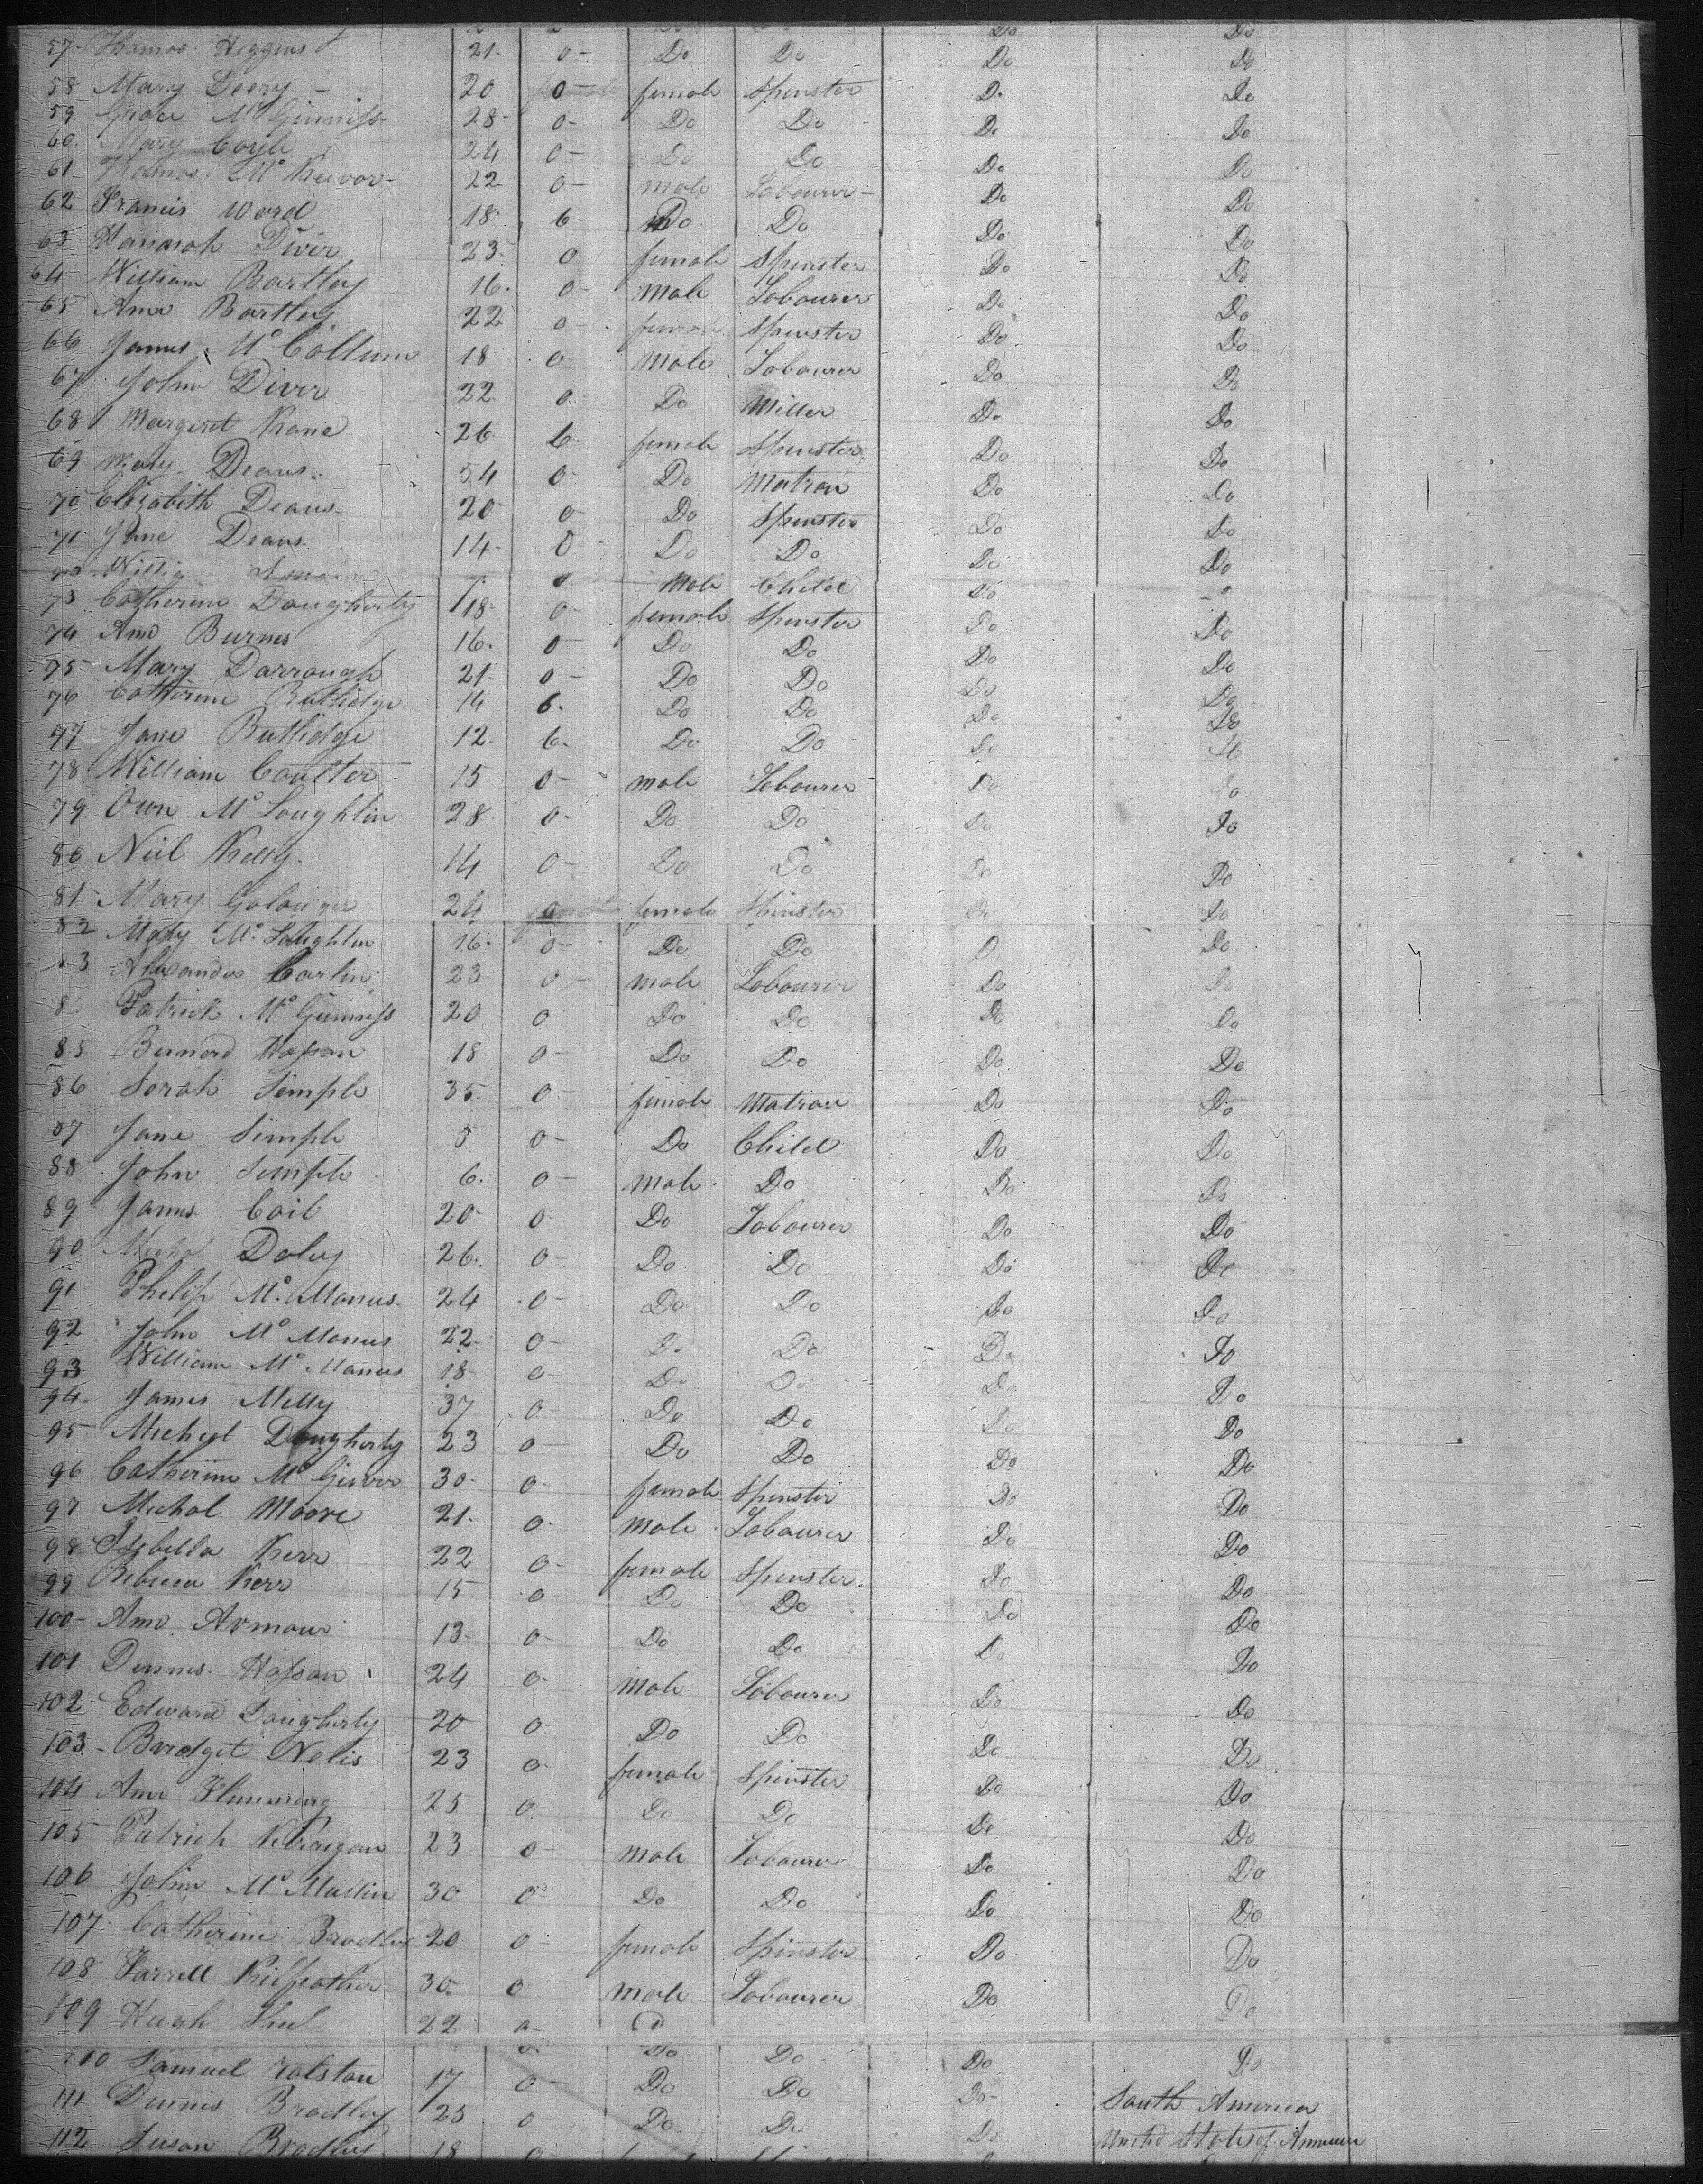 57- Thomas Higgins 21- 0- Do Do Do Do
58 Mary Feery - 20 0- female Spinster Do Do
59 Grace McGinniss- 28- 0- Do Do Do Do
60. Mary Coyle 24 0- Do Do Do Do
61- Thomas McKeevor- 22- 0- male Labourer- Do Do
62 Francis Ward 18- 6- Do Do Do Do
63 Hannah Diver 23- 0 female Spinster Do Do
64 William Bartley 16. 0- male Labourer Do Do
65 Ann Bartley 22 0- female Spinster Do Do
66 James McCollum 18 0- Male Labourer Do Do
67 John Diver 22 0- Do Miller Do Do
68 Margaret Kane 26 6. female Spinster Do Do
69 Mary Deans. 54 0- Do Matron Do Do
70 Elizabeth Deans- 20- 0- Do Spinster Do Do
71 Jane Deans. 14- 0 Do Do Do Do
72 7. 0 Male Child Do
73 Catherine Dougherty 18- 0- female Spinster Do Do
74 Ann Burnes 16. 0- Do Do Do Do
75 Mary Darrough 21- 0- Do Do Do Do
76 Catherine Rutlidge 14 6. Do Do Do Do
77 Jane Rutlidge 12- 6. Do Do Do Do
78 William Coulter 15 0- male Labourer Do Do
79 Own McLoughlin 28 0- Do Do Do Do
80 Neil Kelly- 14 0- Do Do Do Do
81- Mary 24 0 female Spinster Do Do
82 Mary McLaughlin 16- 0- Do Do Do Do
83 Alexander Carlin 23 0- male Labourer Do Do
8 Patrick McGinniss 20 0 Do Do Do Do
85 Bernard Hassan 18 0- Do Do Do Do
86 Sarah Semple 35. 0- female Matron Do Do
87 Jane Simple 5 0- Do Child Do Do
88 John Semple 6. 0- male Do Do Do
89 James Coil 20 0- Do Labourer Do Do
90 Michl Doley 26. 0- Do Do Do Do
91 Philip McManus 24 0- Do Do Do Do
92 John McManus 22- 0- Do Do Do Do
93 William McManus 18- 0- Do Do Do Do
94. James Melly 37 0- Do Do Do Do
95 Micheal Dougherty 23 0- Do Do Do Do
96 Catherine McGirvor 30- 0- female Spinster Do Do
97 Michal Moore 21- 0- Male Labourer Do Do
98 Isabella Kerr 22 0- female Spinster. Do Do
99 Rebecca Kerr 15 0- Do Do Do Do
100- Ann Armour 13- 0- Do Do Do Do
101 Dinnis Hassan 24 0- Male Labourer Do Do
102 Edward Daugherty 20 0- Do Do Do Do
103- Bridget Nelis 23 0- female Spinster Do Do
104 Ann Flemming 25 0 Do Do Do Do
105 Patrick 23 0- Male Labourer Do Do
106 John McMackin 30 0- Do Do Do Do
107. Catherine Bradley 20 0- female Spinster Do Do
108 Farrell Kilfeather 30. 0 Male Labourer Do Do
109 Hugh 22 0- Do Do Do Do
110 Samuel Ralston 17 0- Do Do Do- South America
111 Dinnis Bradley 25 0 Do Do Do United States of America
112 Susan Bradley 18 0